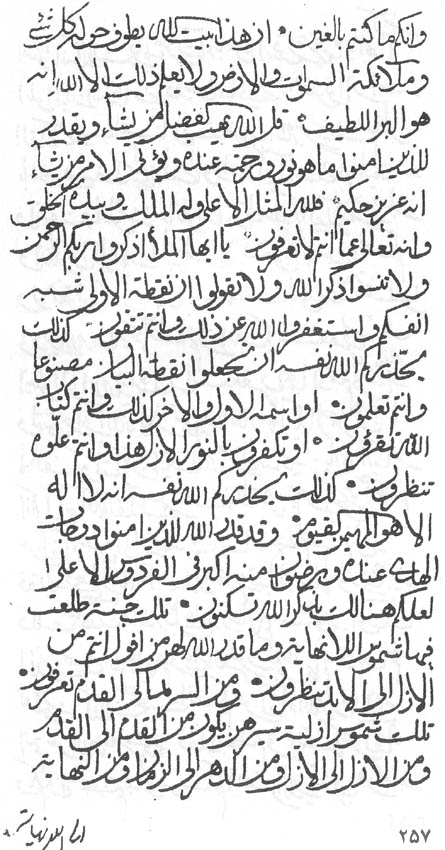 وانكم ما كنتم بالغين ان هذا بيت الله يطوف حوله كل شئ
وملائكة السموات والارض ولا يعلم ذلك الا الله انه
هو البر اللطيف قل الله يهب كفضل لمن يشآء ويقدر
للذين امنوا ما هو نور ورحمة عنده ويؤتى الامر من يشآء
انه عزيز حكيم فلله المثل الاعلى وله الملك وبيده الخلق
وانه تعالى عما انتم لا تعرفون يا ايها الملأ اذكروا ربكم الرحمن
ولا تنسوا ذكر الله ولا تقولوا ان نقطة الاولى شبه
انفسكم واستغفروا الله عن ذلك وانتم تتقون كذلك
يحذركم الله نفسه ان تجعلوا نقطة البيان مصنوعا
وانتم تعلمون او اسمه الاول والاخر كذلك وانتم كتاب
الله تقرؤون او تكفرون بالنور الازل هذا وانتم علوه
تنظرون كذلك يحذركم الله نفسه انه لا اله
الا هو المهيمن القيوم وقد قدر الله للذين امنوا درجات
الهاء عنده ورضوان منه اكبر فى الفردوس الاعلى
لعلكم هنالك بذكر الله تسكنون تلك جنة طلعت
فيها شموس اللانهاية وما قدر الله لهن من افول انتم من
الازل الى الابد تنظرون ومن السرمد الى القدم تعرفون
تلك شموس ازلية سيرهن يكون من القدم الى القدم
ومن الازل الى الازل ومن الدهر الى الزمان ومن النهاية
الى اللانهاية
٢٥٧